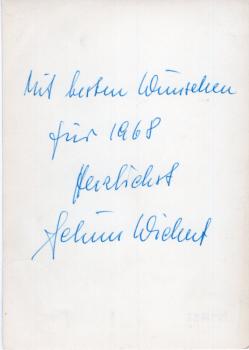 Mit besten Wünschen
für 1968
Herzlichst
Wichert